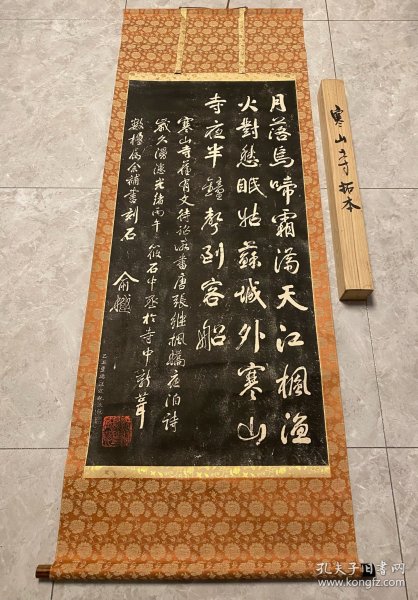 月落烏啼霜滿天江楓漁
火對愁眠姑蘇城外寒山
寺夜半鐘聲到客船
寒山寺舊有文待詔所書唐張繼楓橋夜泊詩
歲久漫漶光緒丙午筱石中丞於寺中新葺
數楹屬余補書刻石
俞樾
寒山寺拓本
孔夫子旧书网
www.kongfz.com